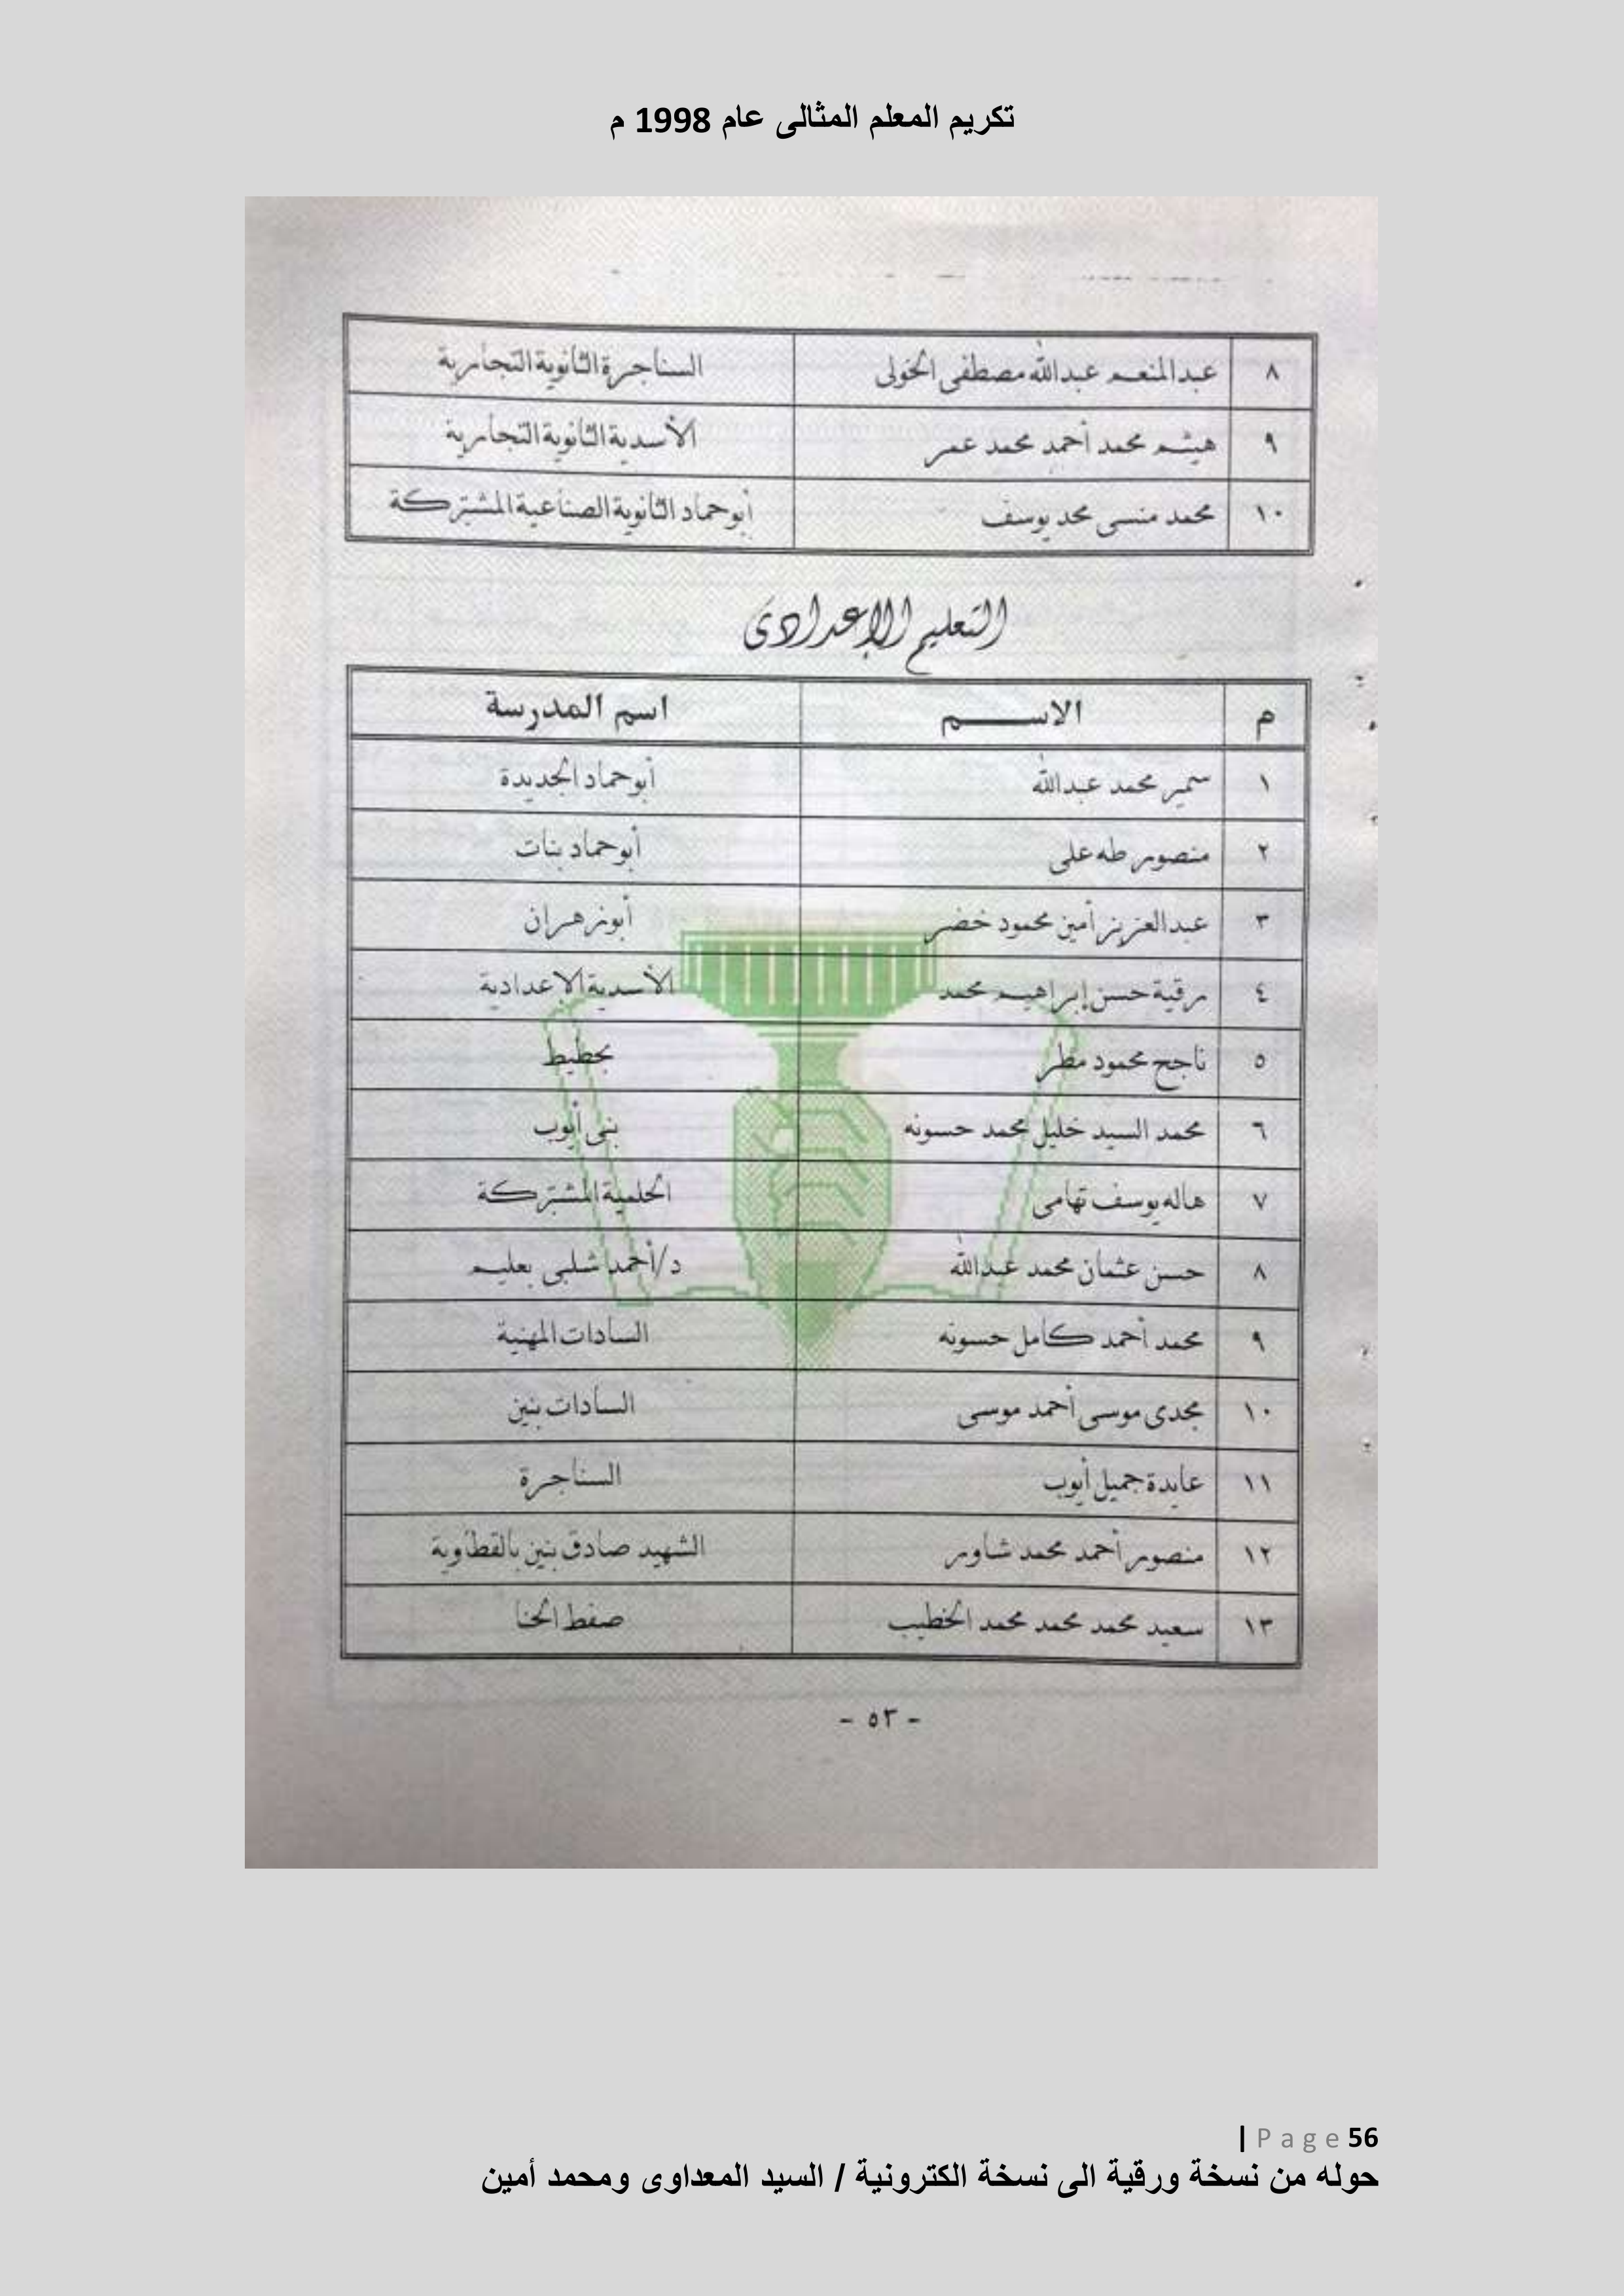 تكريم المعلم المثالى عام 1998 م
٨ عبدالمنعم عبدالله مصطفى الخولى السناجرة الثانوية التجارية
٩ هيثم محمد أحمد محمد عمر الأسدية الثانوية التجارية
١٠ محمد منسى محمد يوسف أبوحماد الثانوية الصناعية المشتركة
التعليم الإعدادى
م الاســـــم اسم المدرسة
١ سمير محمد عبدالله أبوحماد الجديدة
٢ منصور طه على أبوحماد بنات
٣ عبدالعزيز أمين محمود خضر أبوزهران
٤ رقية حسن إبراهيم محمد الأسدية الإعدادية
٥ ناجح محمود مطر بحطيط
٦ محمد السيد خليل محمد حسونه بنى أيوب
٧ هاله يوسف تهامى الحلمية المشتركة
٨ حسن عثمان محمد عبدالله د/أحمد شلبى بعليم
٩ محمد أحمد كامل حسونه السادات المهنية
١٠ مجدى موسى أحمد موسى السادات بنين
١١ عايدة جميل أيوب السناجرة
١٢ منصور أحمد محمد شاور الشهيد صادق بنين بالقطاوية
١٣ سعيد محمد محمد محمد الخطيب صفط الحنا
- ٥٣ -
| Page 56
حوله من نسخة ورقية الى نسخة الكترونية / السيد المعداوى ومحمد أمين